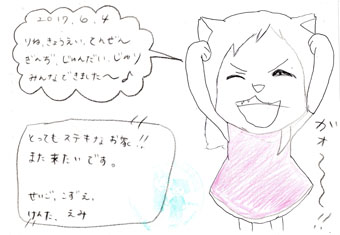 2017.6.4
りね、きょうえい、てんぜん
ぎんぢ、じゅんだい、じゅり
みんなできました〜♪
とってもステキなお家!!
また来たいです。
せいご、こずえ、
けんた、えみ
がオ〜〜〜!!